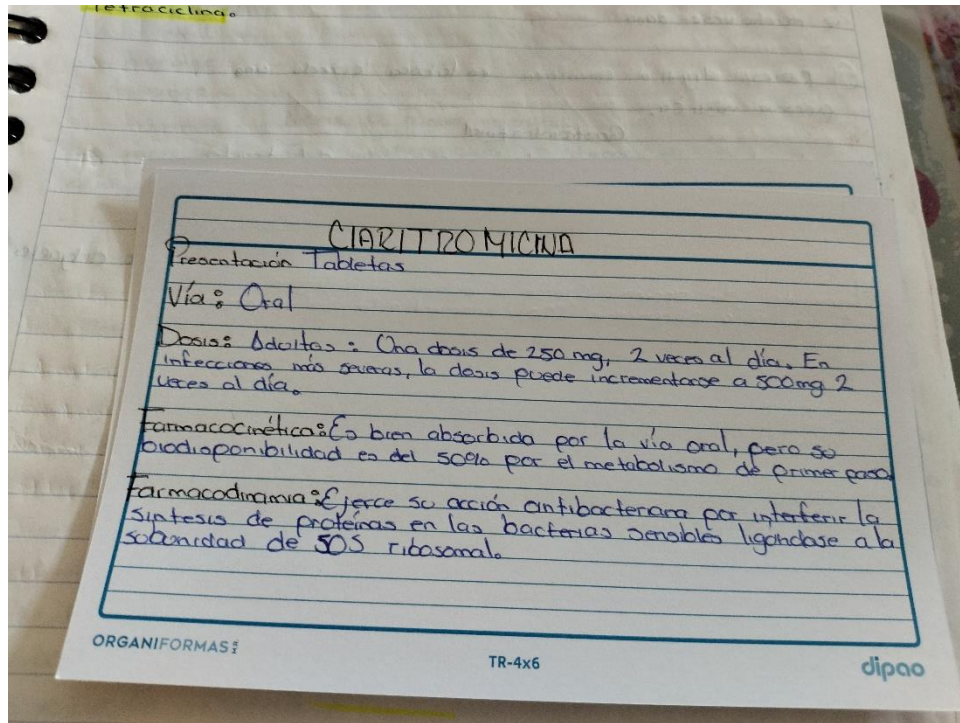 Tetraciclina.
CLARITROMICINA
Presentación Tabletas
Vía: Oral
Dosis: Adultos: Una dosis de 250 mg, 2 veces al día. En
infecciones más severas, la dosis puede incrementarse a 500mg 2
veces al día.
Farmacocinética: Es bien absorbida por la vía oral, pero su
biodisponibilidad es del 50% por el metabolismo de primer paso
Farmacodinamia: Ejerce su acción antibacteriana por interferir la
síntesis de proteínas en las bacterias sensibles ligandose a la
subunidad de 50S ribosomal.
ORGANIFORMAS
TR-4x6
dipao